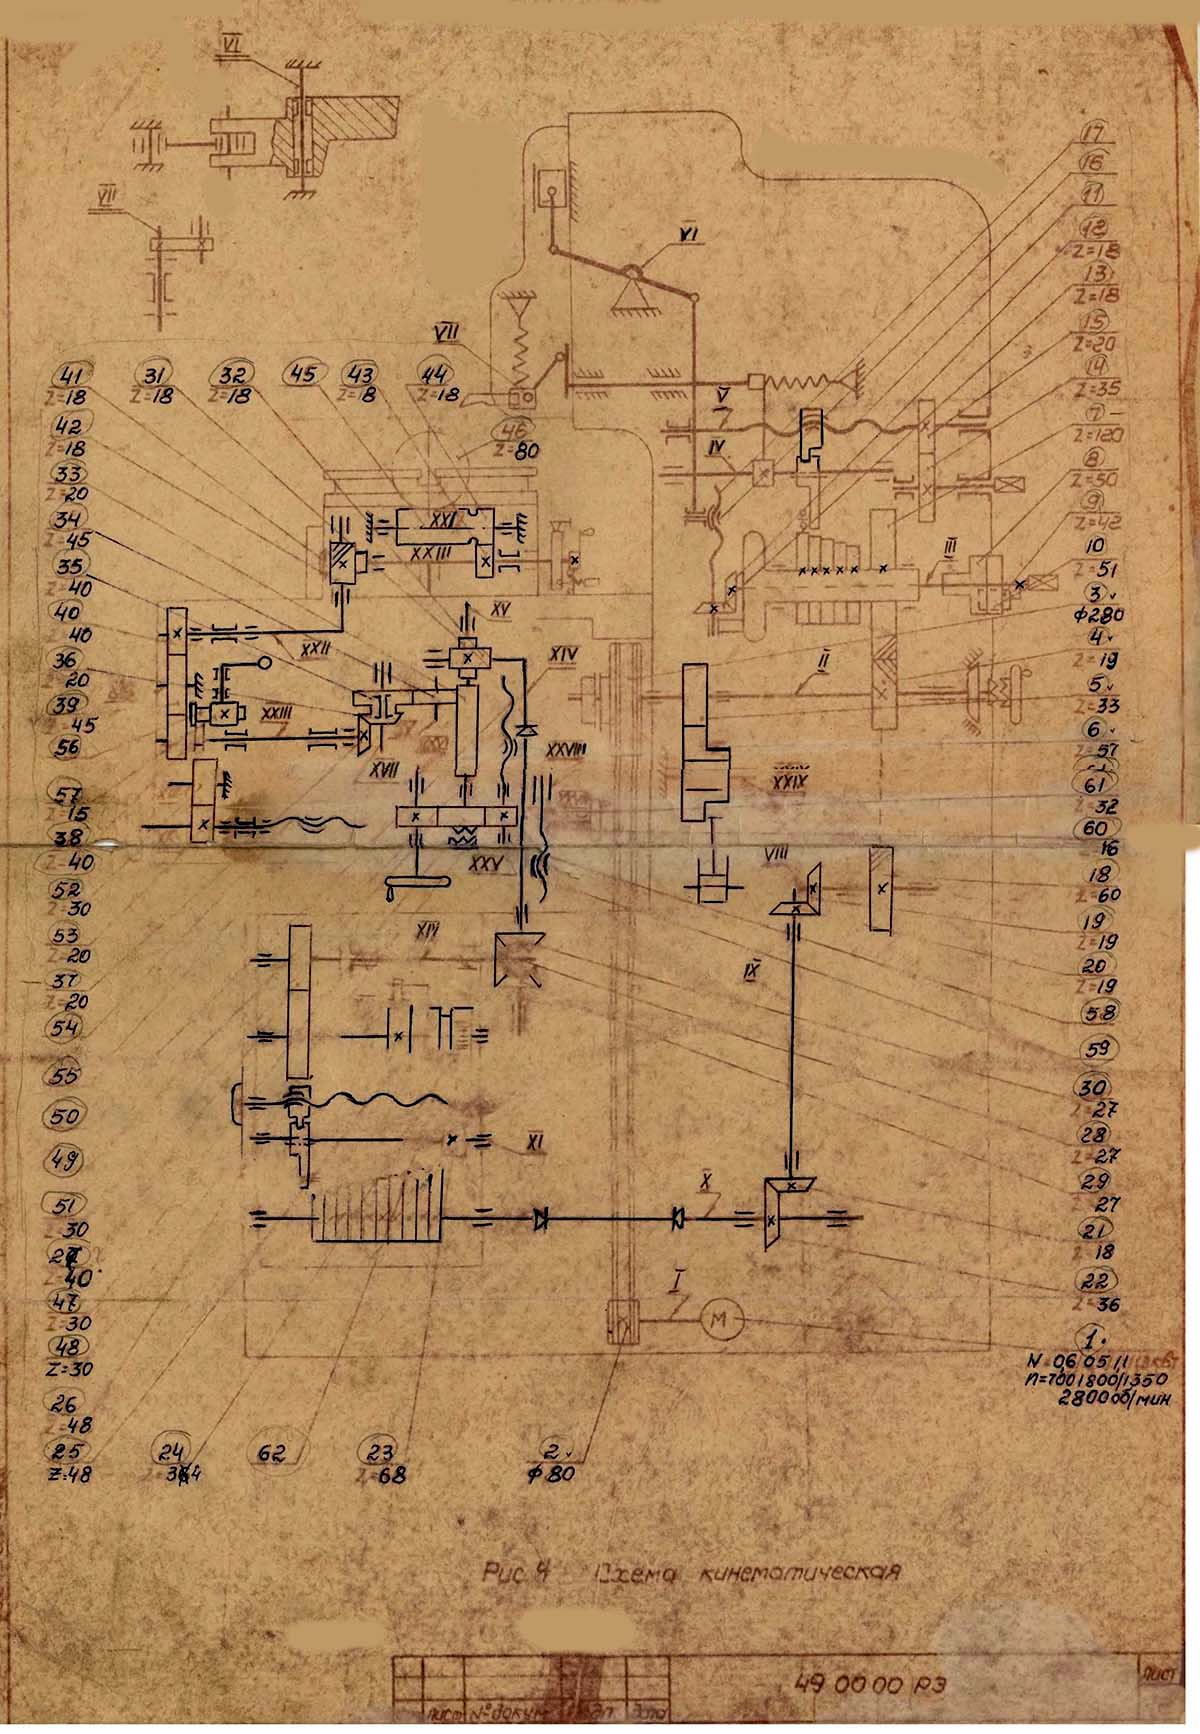 VI
VII
VI
VII
V
IV
III
II
17
16
11
12
Z=18
13
Z=18
15
Z=20
14
Z=35
7
Z=120
8
Z=50
9
Z=42
10
Z=51
3
ф280
4
Z=19
5
Z=33
6
Z=57
61
Z=32
60
16
18
Z=60
19
Z=19
20
Z=19
58
59
30
Z=27
28
Z=27
29
27
21
Z=18
22
Z=36
1.
2800 об/мин
41
Z=18
31
Z=18
32
Z=18
45
43
Z=18
44
Z=18
46
Z=80
42
Z=18
33
Z=20
34
Z=45
35
Z=40
40
40
36
Z=20
39
45
56
57
Z=15
38
Z=40
52
Z=30
53
Z=20
37
Z=20
54
55
50
49
51
Z=30
Z=40
47
Z=30
48
Z=30
26
Z=48
25
Z=48
24
62
23
Z=68
2
ф80
XXI
XXIII
XV
XIV
XXII
XXIII
XVII
XXVIII
XXIX
XXV
VIII
XIV
IX
XI
X
I
М
Рис 4 Схема кинематическая
49 00 00 РЭ
лист
лист № докум. Дата